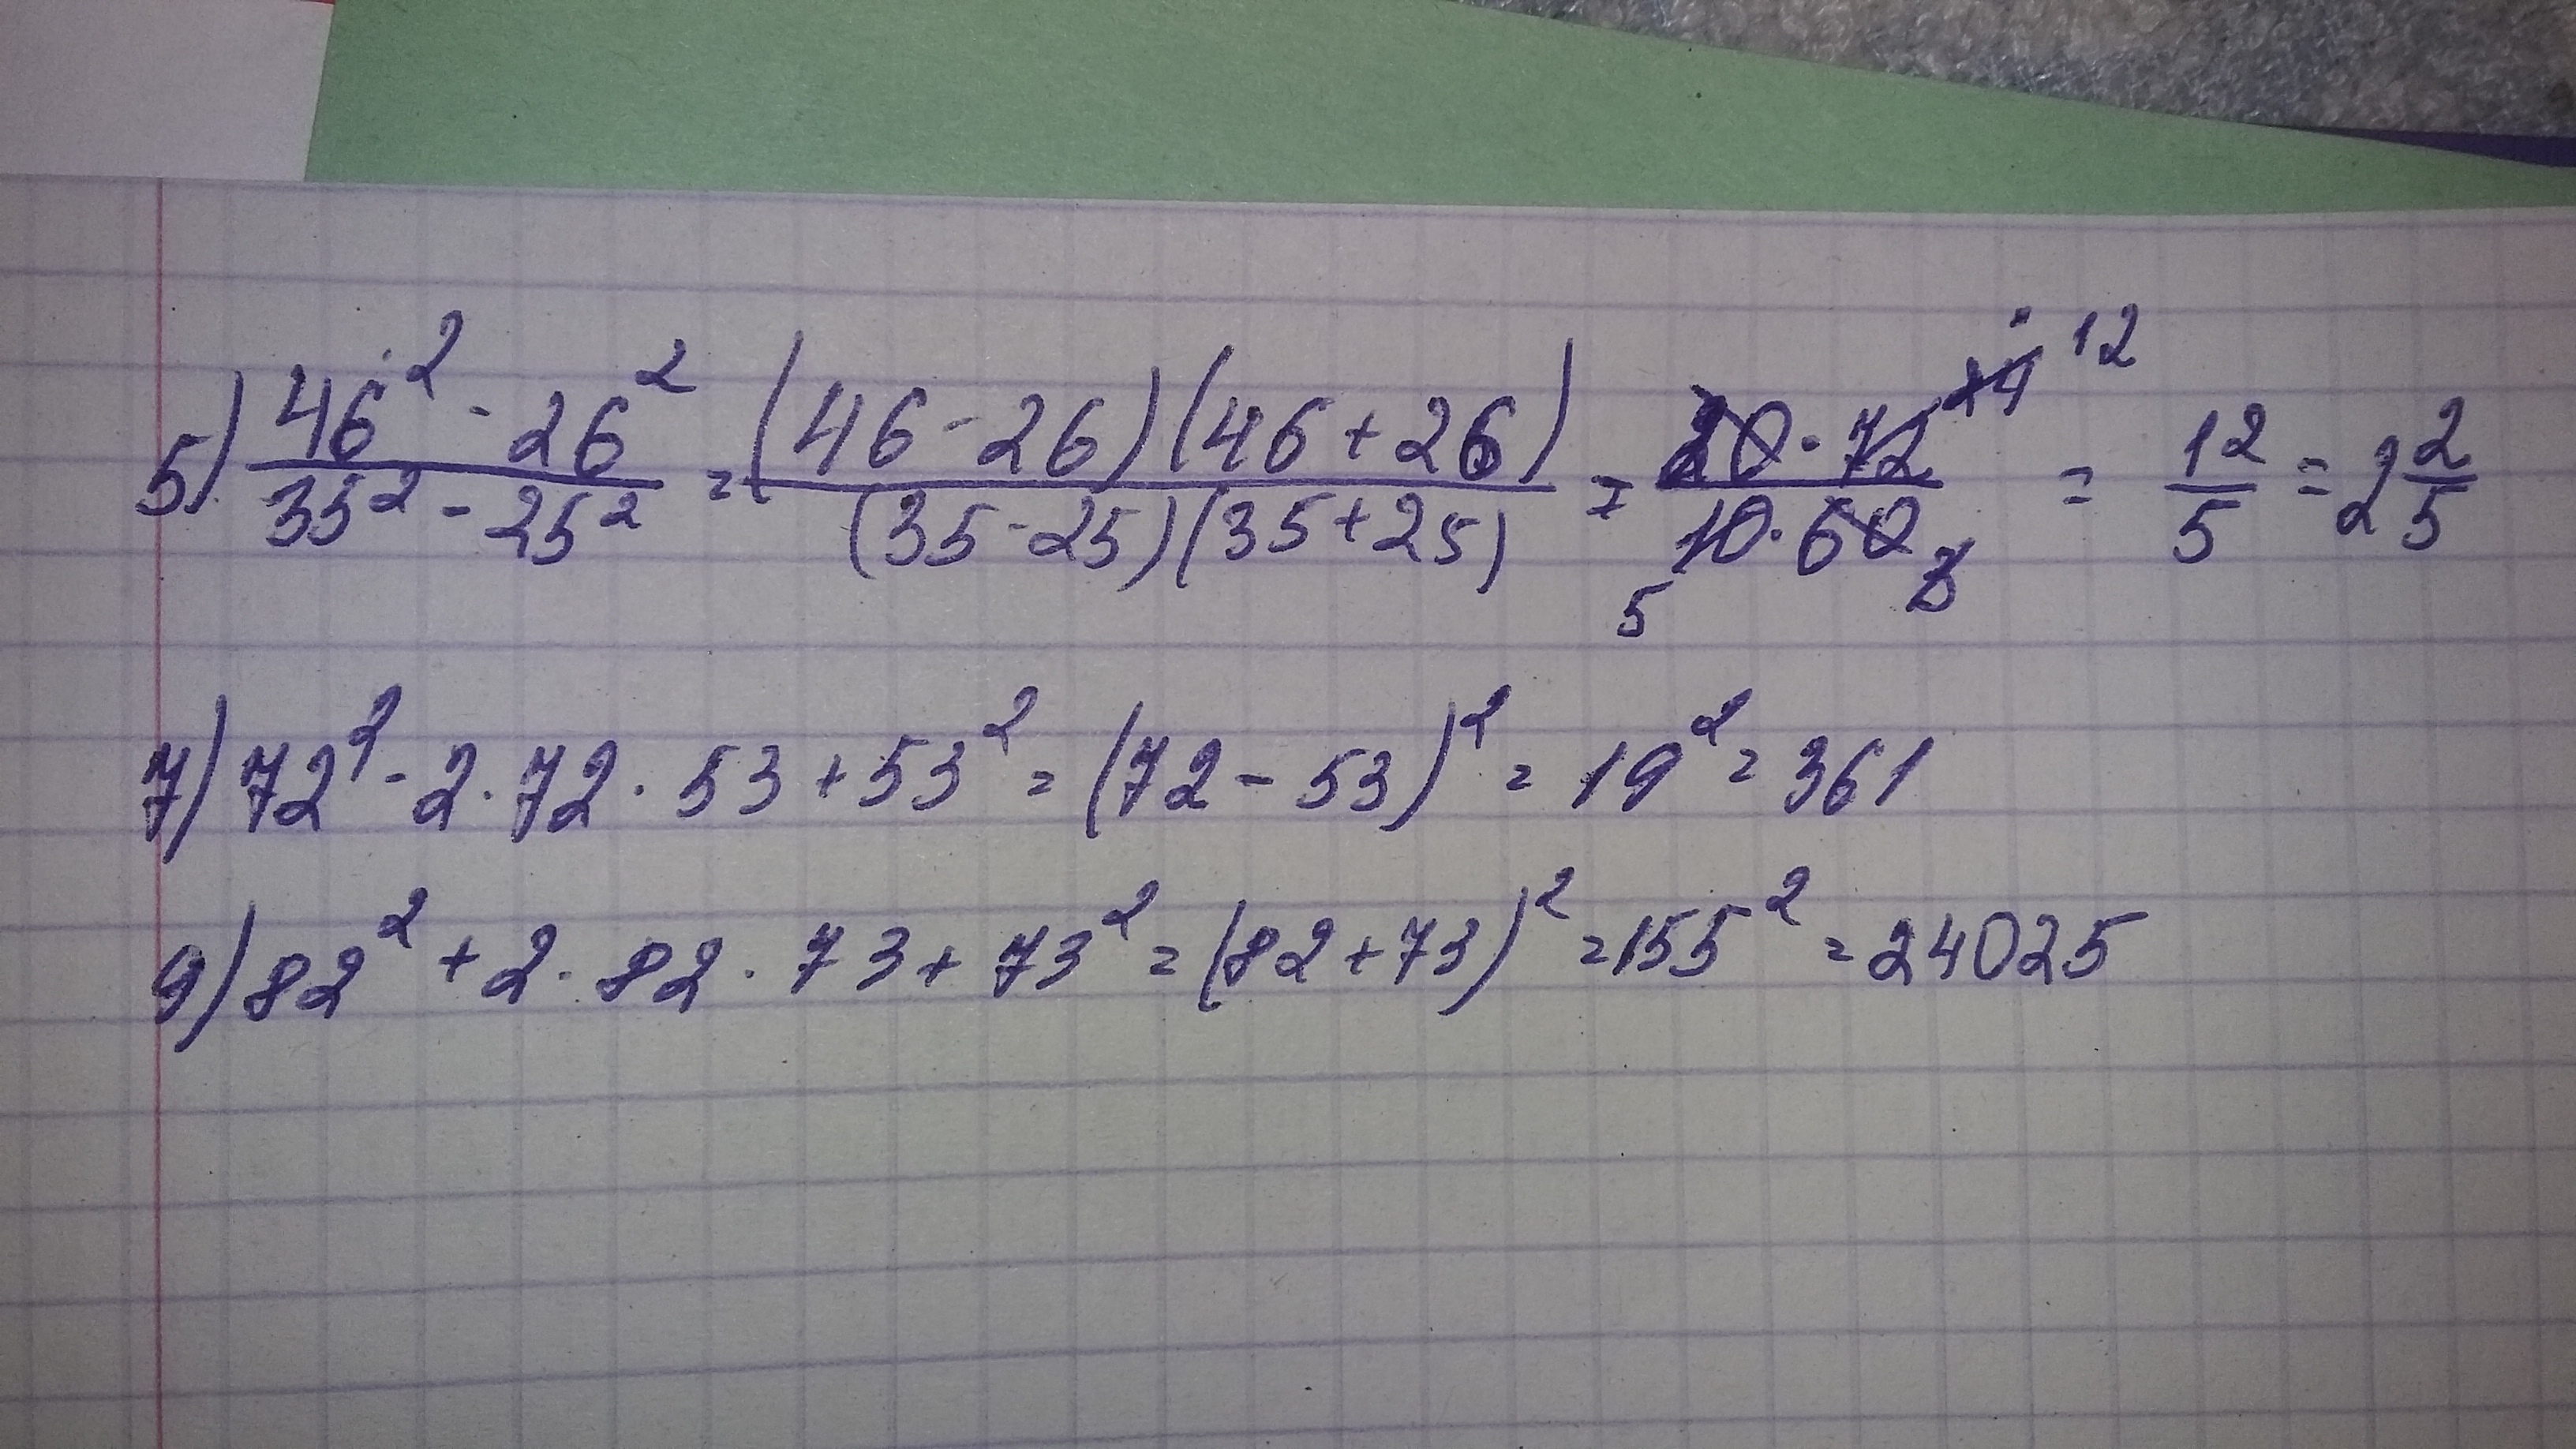 5) 46² - 26² / 35² - 25² = (46 - 26)(46 + 26) / (35 - 25)(35 + 25) = 20 · 72 24 12 / 5 10 · 60 = 12/5 = 2 2/5
7) 72² - 2 · 72 · 53 + 53² = (72 - 53)² = 19² = 361
9) 82² + 2 · 82 · 73 + 73² = (82 + 73)² = 155² = 24025